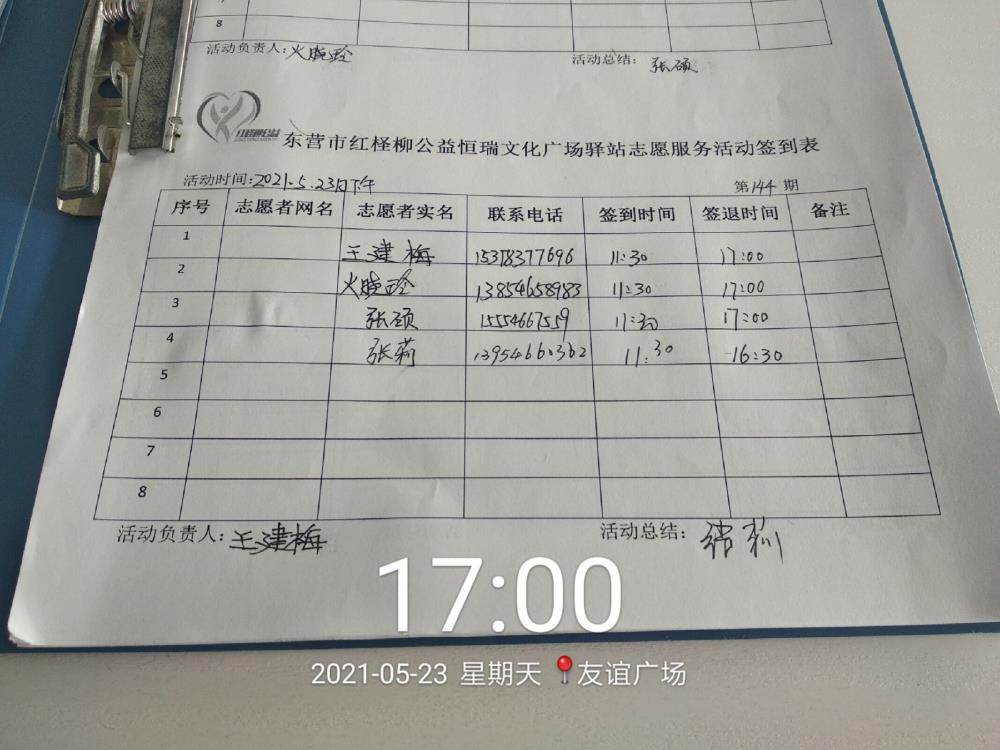 8
活动负责人:火晓玲
活动总结: 张硕
东营市红柽柳公益恒瑞文化广场驿站志愿服务活动签到表
活动时间:2021.5.23日下午
第144期
序号 志愿者网名 志愿者实名 联系电话 签到时间 签退时间 备注
1 王建梅 15378377696 11:30 17:00
2 火晓玲 13854658983 11:30 17:00
3 张硕 15554667559 11:30 17:00
4 张莉 13954660362 11:30 16:30
5
6
7
8
活动负责人:王建梅
活动总结: 张莉
17:00
2021-05-23 星期天 友谊广场